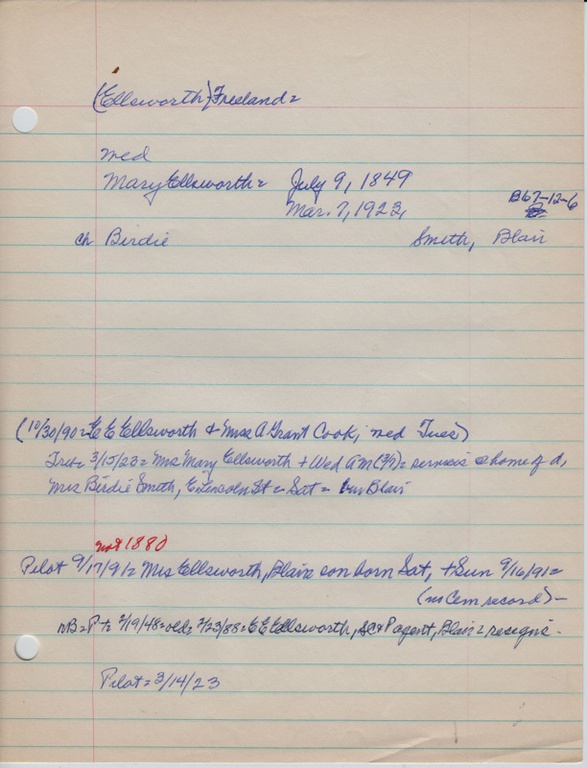 (Ellsworth) Freeland =
med
Mary Ellsworth = July 9, 1849
Mar. 7, 1923,
B67-12-6
ch Birdie Smith, Blair
(10/30/90 = E E Ellsworth & Miss A Grant Cook, med Tues)
Trib = 3/15/23 = Mrs Mary Ellsworth + Wed A M (3/7) = services @ home of d,
Mrs Birdie Smith, E Lincoln St = Sat = Blair
not 1880
Pilot 9/17/91 = Mrs Ellsworth, Blair = son born Sat, + Sun 9/16/91 =
(no Cem record) -
NB = P + 2/19/48 = old = 2/23/88 = E E Ellsworth, SC & P agent, Blair = resigns.
Pilot = 3/14/23